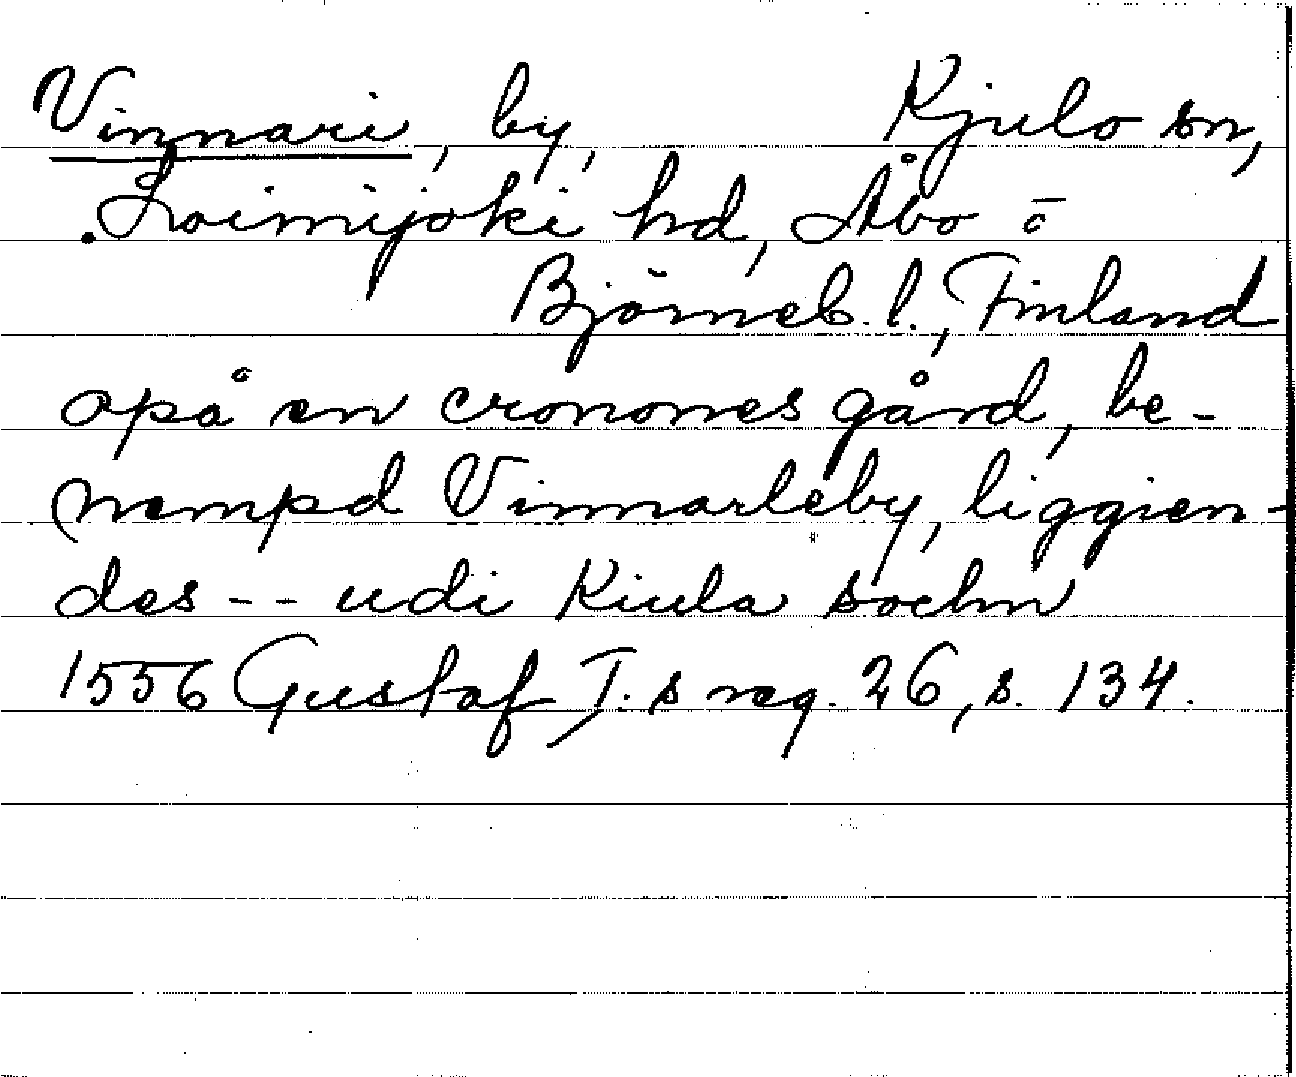 Vinnari, by, Kjulo sn,
Loimijoki hd, Åbo o
Björneb. l., Finland
opå en cronones gård, be-
nempd Vinnarleby, liggien-
des -- udi Kiula sochn
1556 Gustaf I:s reg. 26, s. 134.